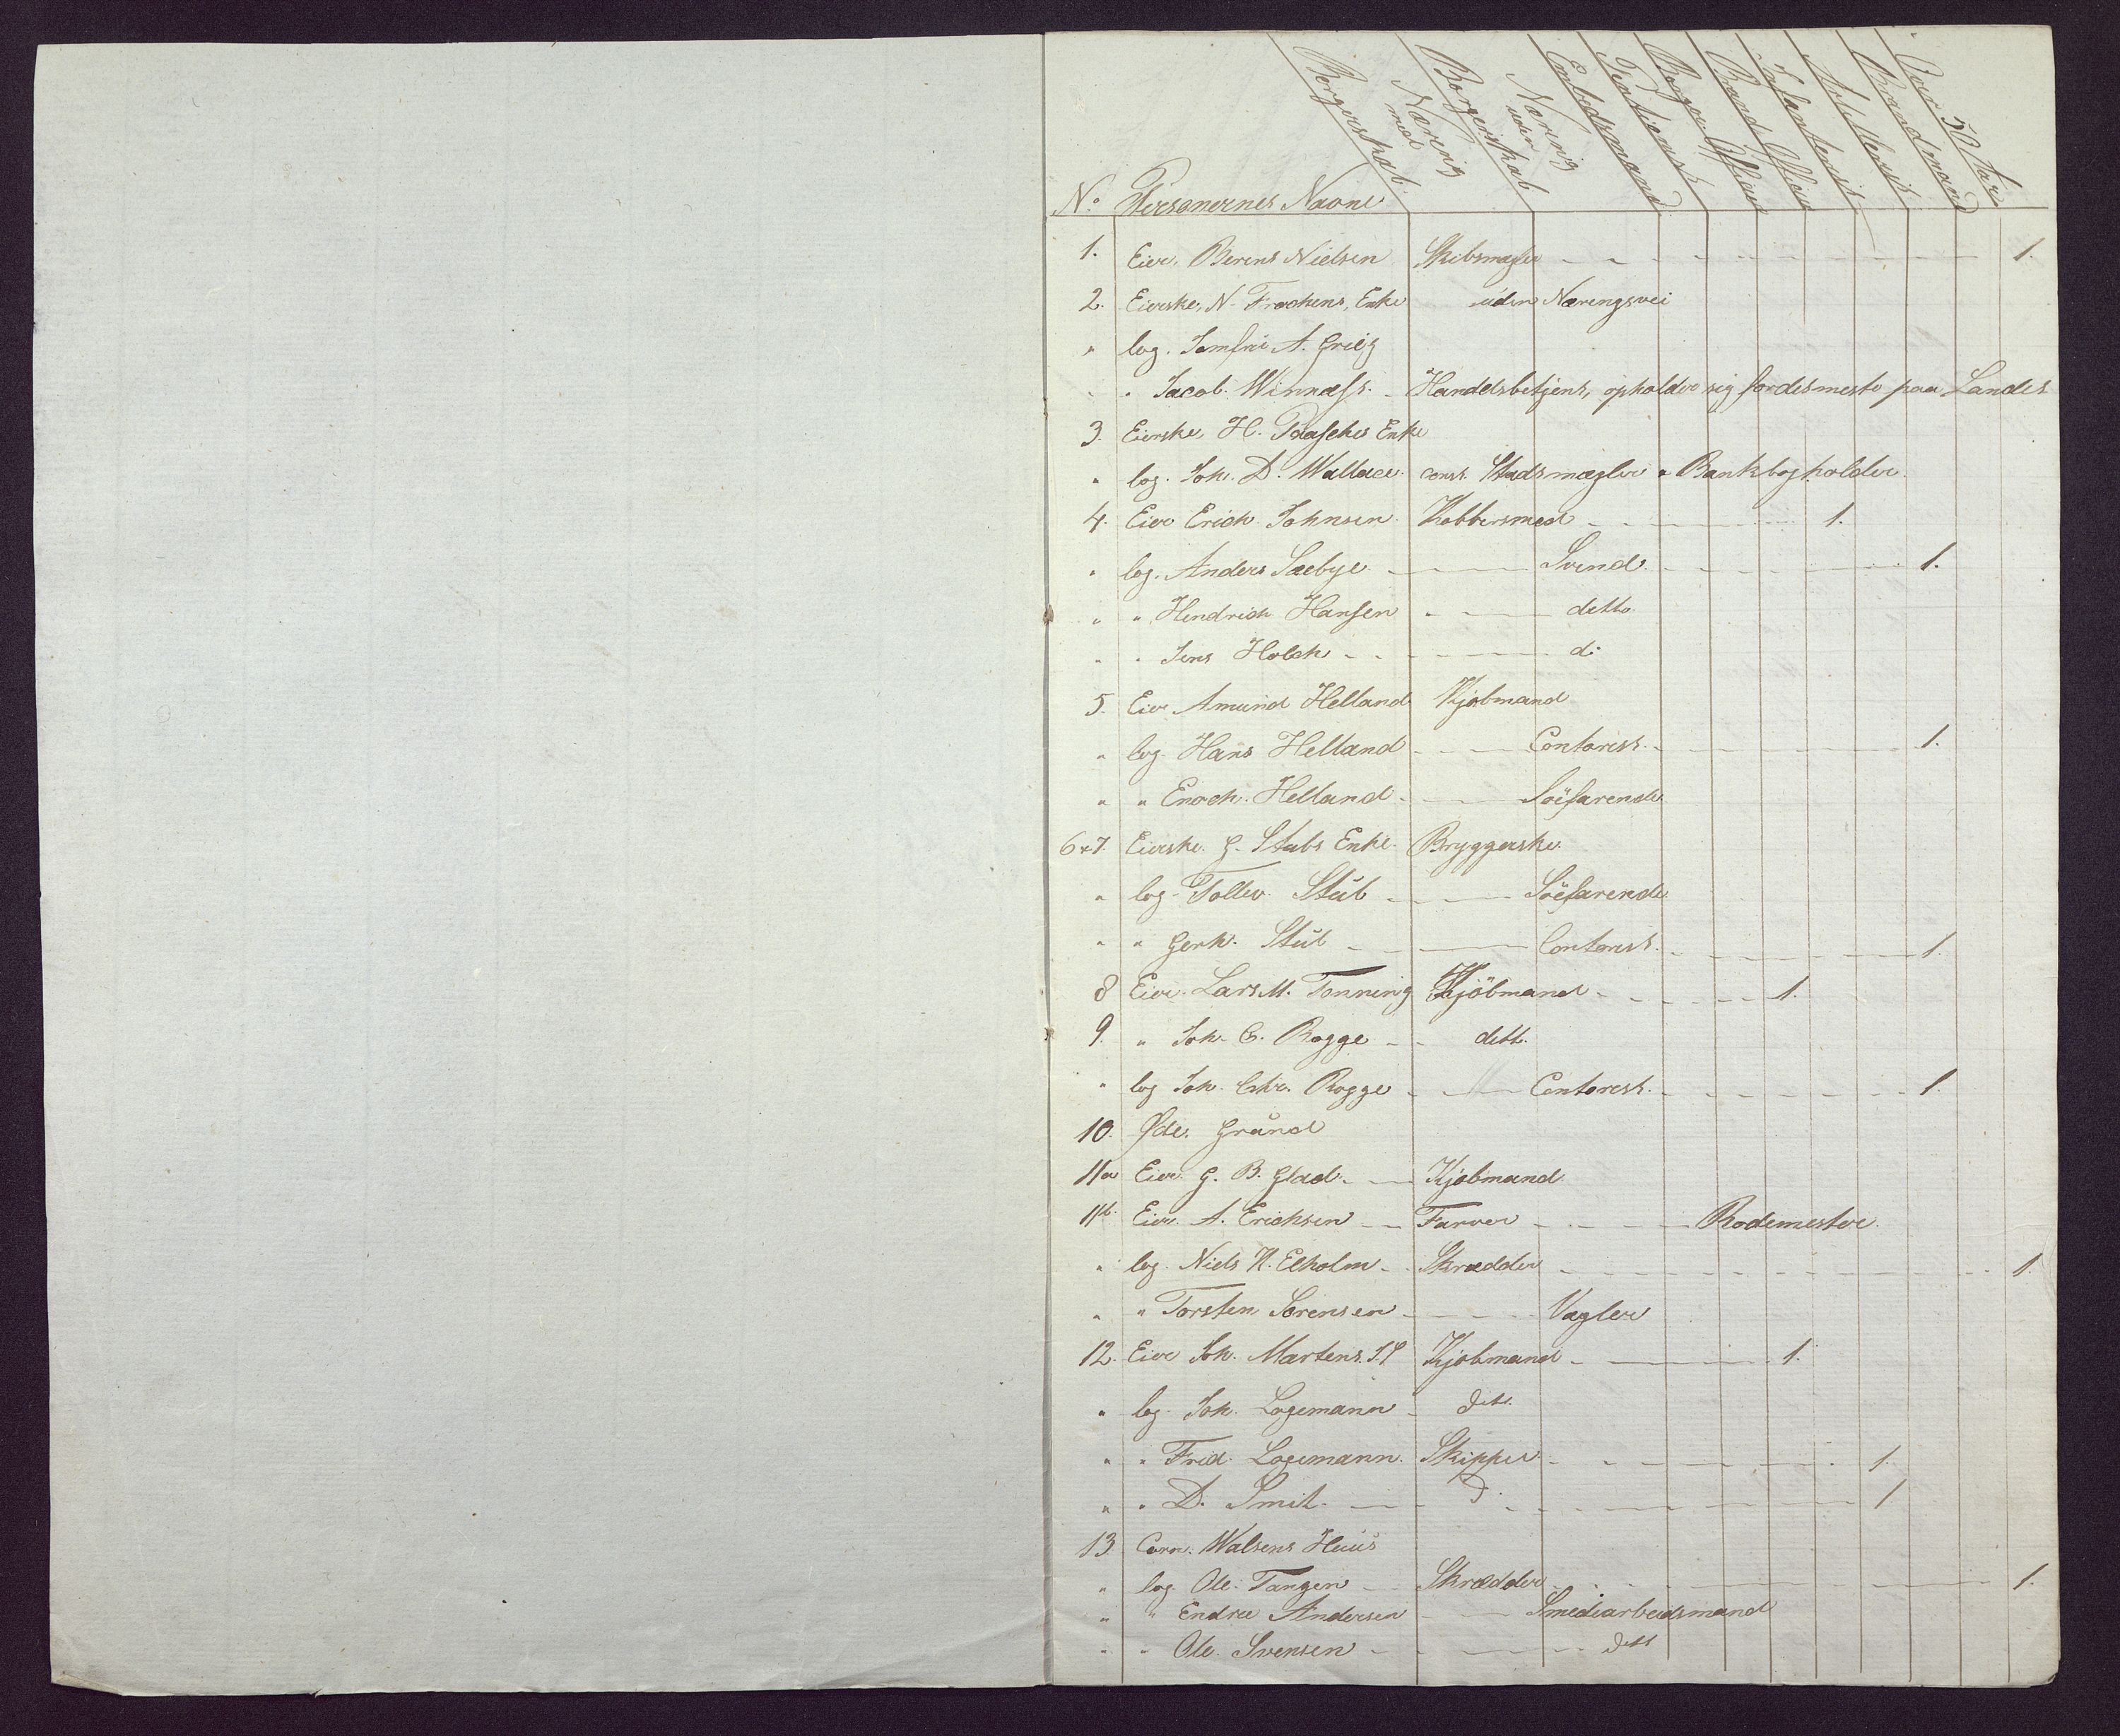 Næring med Borgerskab
Næring uden Borgerskab
Embedsmænd
Borger Officier
Brand Officier
Infanterist
Artillerist
Brandmand
Over 50 Aar
No. Personernes Navne
1. Eier. Berent Nielsen Skibsmægler 1.
2. Eierske, N. Enke uden Næringsvei
" log. Jomfru A. Grieg
" " Jacob Winnæss. Handelsbetjent, opholder sig fordetmeste paa Landet
3. Eierske, H. Enke
" log. Joh. D. Wallace const. Stadsmægler & Bankbogholder
4. Eier Erich Johnsen Kobbersmed 1.
" log. Anders Sæbye Svend 1.
" " Hendrich Hansen detto
" " Jens Holch do
5. Eier Amund Helland Kjøbmand
" log. Hans Helland Contorist 1.
" " Enoch Helland Söefarende
6 & 7. Eierske G. Stubs Enke Bryggerske
" log. Tollev Stub Söefarende
" " Gerh. Stub Contorist 1.
8 Eier Lars M. Tonning Kjöbmand 1.
9. " Joh. C. Rogge dett.
" log Joh. Chr. Rogge Contorist 1.
10. Øde Grund
11a Eier G. B. Glad Kjøbmand
11b. Eier A. Erichsen Farver Rodemester
" log. Niels H. Elholm Skrædder 1.
" " Torsten Sørensen Vægter
12. Eier Joh. Martens Kjøbmand 1.
" log. Joh. Logemann det.
" " Fred. Logemann Skipper 1.
" " D. Smit do 1
13 Corn. Walsens Huus
" log Ole Tangen Skrædder 1.
" " Endre Andersen Smediarbeidsmand
" " Ole Svensen dett